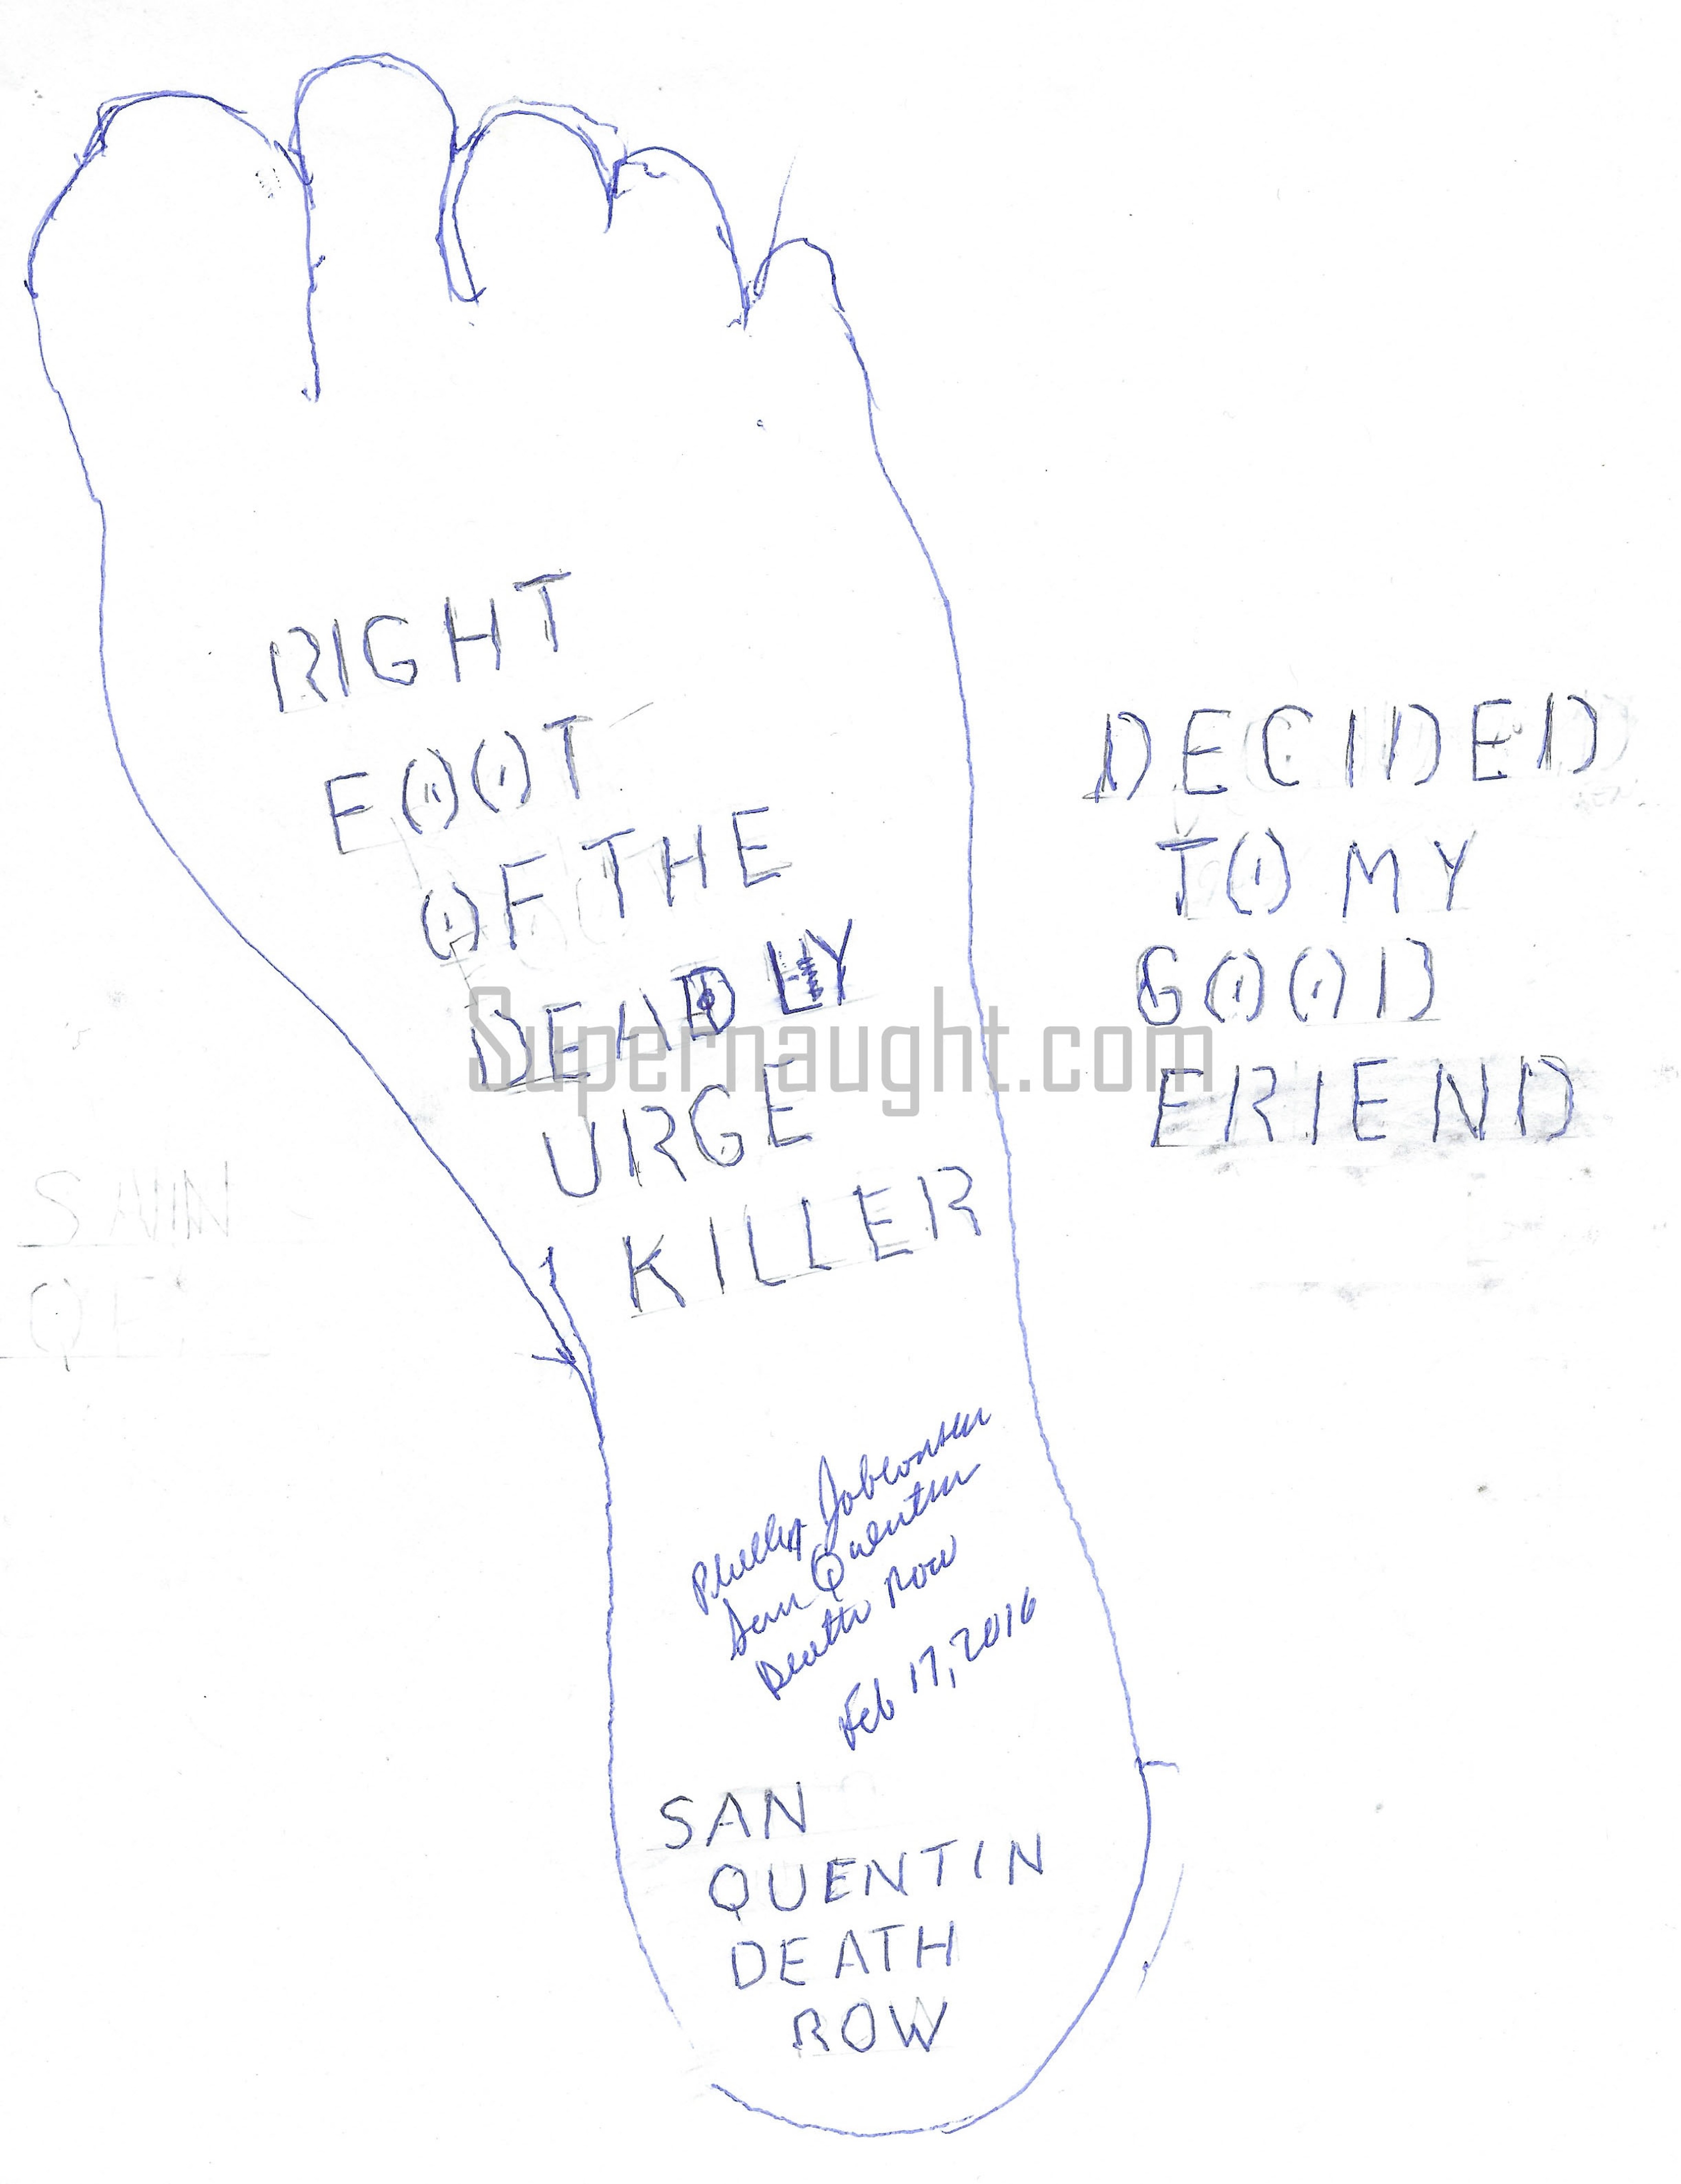 RIGHT
FOOT
OF THE
DEADLY
URGE
KILLER
Phillip Jablonski
San Quentin
Death Row
Feb 17, 2016
SAN
QUENTIN
DEATH
ROW
DECIDED
TO MY
GOOD
FRIEND
Supernaught.com